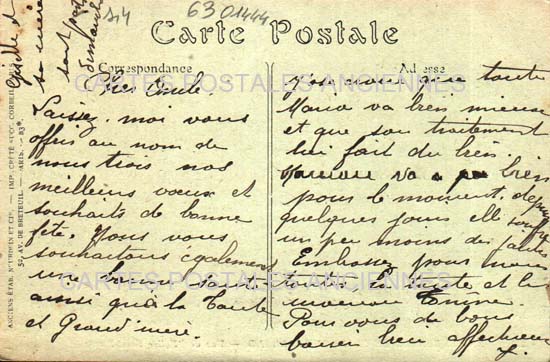 S4
63 01444
Carte Postale
Correspondance
Adresse
Cher Oncle.
Laissez-moi vous
offrir au nom de
nous trois nos
meilleurs vœux et
souhaits de bonne
fête. Nous vous
souhaitons également
une bonne santé
ainsi qu'à la Tante
et Grand'mère.
que toute
Maria va bien mieux
et que son traitement
lui fait du bien.
Maman va bien
pour le moment, depuis
quelques jours elle souffre
un peu moins des
Embrassez pour moi
la Tante et la
Pour vous de bons
baisers bien affectueux
CARTES POSTALES ANCIENNES
CARTES POSTALES ANCIENNES
ANCIENS ETAB. NEURDEIN ET CIE. — IMP. CRÉTÉ SUCC. CORBEIL
52, AV. DE BRETEUIL. — PARIS. — B3*.